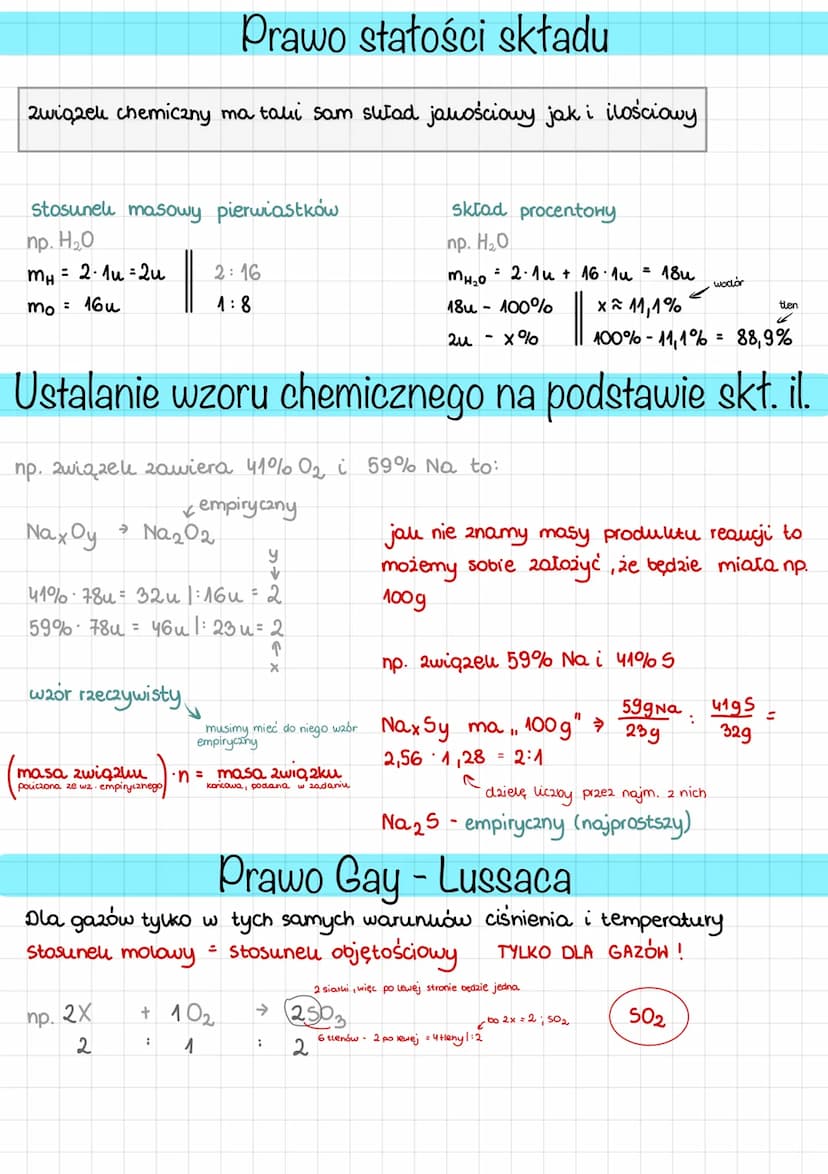 Prawo stałości składu
związek chemiczny ma taki sam skład jakościowy jak i ilościowy
stosunek masowy pierwiastków
np. H₂O
mH = 2·1u = 2u
mO = 16u
2 : 16
1 : 8
skład procentowy
np. H₂O
mH₂O = 2·1u + 16·1u = 18u
18u - 100%
2u - x%
x ≈ 11,1%
wodór
100% - 11,1% = 88,9%
tlen
Ustalanie wzoru chemicznego na podstawie skł. il.
np. związek zawiera 41% O₂ i 59% Na to:
empiryczny
NaxOy → Na₂O₂
y
↓
41% · 78u = 32u |:16u = 2
59% · 78u = 46u |: 23u = 2
↑
x
wzór rzeczywisty
musimy mieć do niego wzór
empiryczny
(masa związku policzona ze wz. empirycznego) · n = masa związku końcowa, podana w zadaniu
jak nie znamy masy produktu reakcji to
możemy sobie założyć, że będzie miała np.
100g
np. związek 59% Na i 41% S
NaxSy ma „100g" → 59gNa/23g : 41gS/32g =
2,56 · 1,28 = 2:1
dzielę liczby przez najm. z nich
Na₂S - empiryczny (najprostszy)
Prawo Gay - Lussaca
Dla gazów tylko w tych samych warunków ciśnienia i temperatury
stosunek molowy = stosunek objętościowy TYLKO DLA GAZÓW !
2 siarki, więc po lewej stronie będzie jedna.
np. 2X + 1O₂ → 2SO₃
bo 2x = 2 ; SO₂
SO₂
2 : 1 : 2
6 tlenów - 2 po lewej = 4 tleny |:2